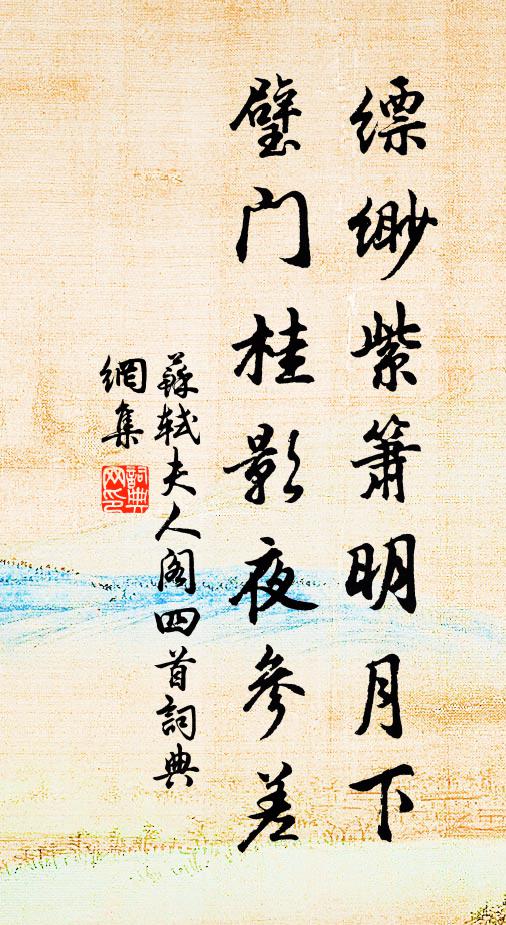 缥缈紫箫明月下
璧门桂影夜参差
蘇轼夫人阁四首詞典
網集
詞典
网印